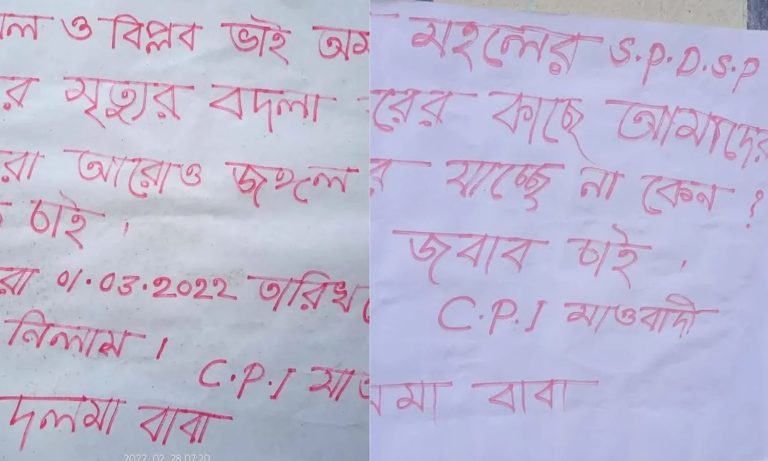 ল ও বিপ্লব ভাই অম
র মৃত্যুর বদলা
রা আরোও জঙ্গলে
চাই ।
রা 01.03.2022 তারিখ
নিলাম ।
C.P.I মাও
দলমা বাবা
2022 02 28 07:20
মহলের S.P.D.S.P
রের কাছে আমাদের
র যাচ্ছে না কেন ?
জবাব চাই ।
C.P.I মাওবাদী
মা বাবা